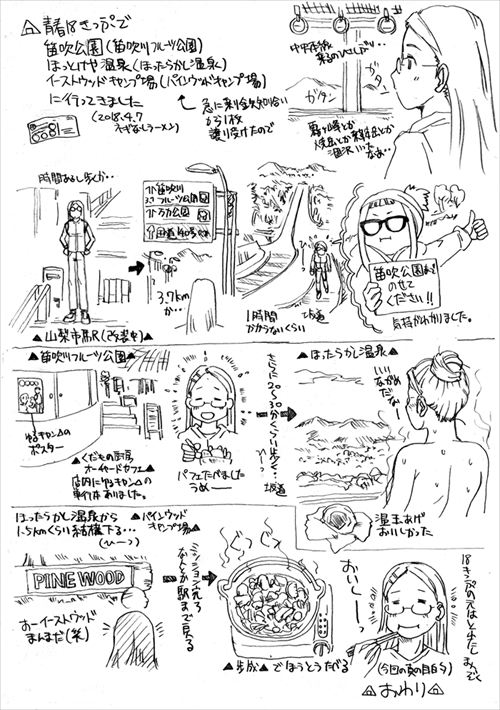 青春18きっぷで
笛吹公園(笛吹川フルーツ公園)
ほっとけや温泉(ほったらかし温泉)
イーストウッドキャンプ場(パインウッドキャンプ場)
に行ってきました
(2018.4.7
ネギなしラーメン)
急に乗り鉄な知り合い
から1枚
譲り受けたので
中央本線
乗るのひさしぶり…
ガタン
ガタン
霧ヶ峰とか
行ったなあ…
時間あるし歩くか…
笛吹川
フルーツ公園
万力公園
国道140号
3.7km
か…
1時間
かからないくらい
坂道
笛吹公園まで
のせて
ください!!
気持がわかりました。
▲山梨市駅(改装中)▲
▲笛吹川フルーツ公園▲
ゆるキャン△の
ポスター
▲くだもの厨房
オーチャードカフェ▲
店内にゆるキャン△の
単行本ありました。
パフェたべました
うめー
さらに20~30分くらい歩く…
坂道
▲ほったらかし温泉▲
いいながめだなー
温玉あげ
おいしかった
ほったらかし温泉から
1.5kmくらい結構下る…
(ひーっ)
▲パインウッド
キャンプ場▲
PINE WOOD
おーイーストウッド
まんまだ(笑)
ミッション完了
なんとか駅まで戻る
▲歩成▲でほうとうたべる
おいしーっ
18きっぷの元はとれたしまんぞく
(今回の真の目的)
△おわり△